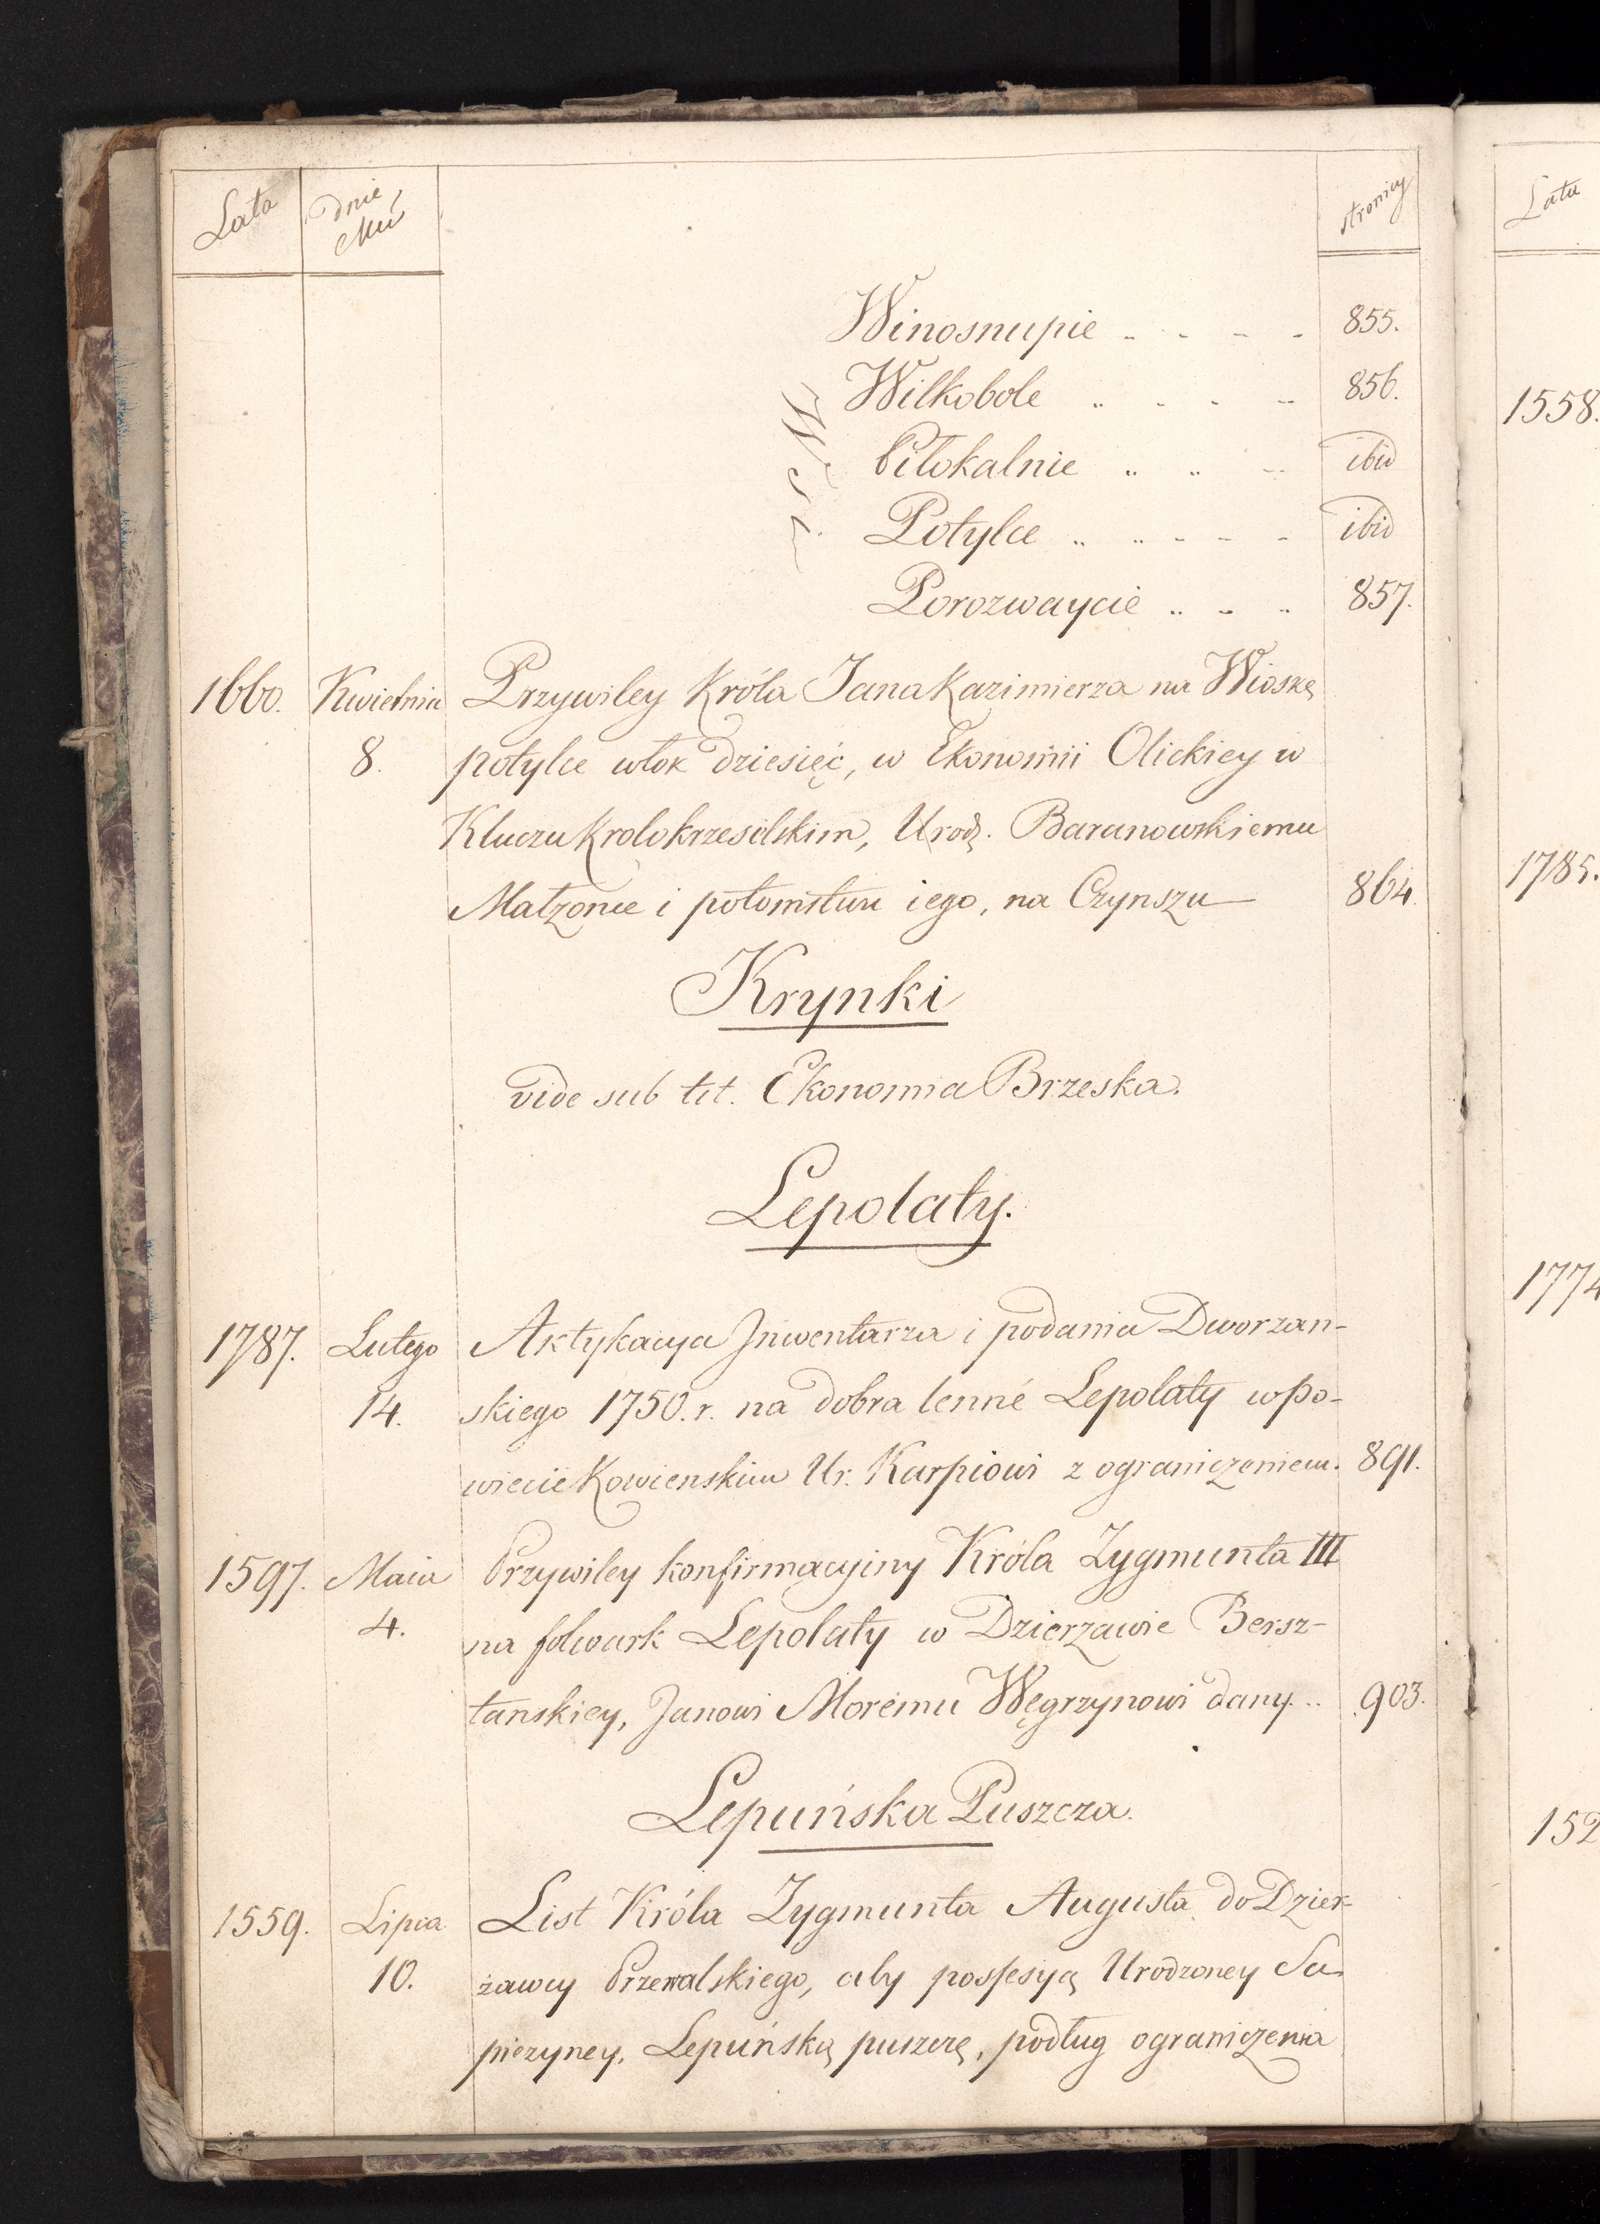 Lata
dnie
Mca
stronicy
Winosnupie 855.
Wsi
Wilkobole 856.
Piłokalnie ibid
Potylce ibid
Porozwaycie 857.
1660. Kwietnia Przywiley Króla Jana Kazimierza na Wioskę
8. potylce włok dziesięć, w Ekonomii Olickiey w
Kluczu Krolokrzesilskim, Urodz. Baranowskiemu
Małżonce i potomstwu iego, na Czynszu 864.
Krynki
vide sub tit. Ekonomia Brzeska.
Lepolaty.
1787. Lutego Aktykacya Jnwentarza i podania Dworzan-
14. skiego 1750. r. na dobra lenné Lepolaty w Po-
wiecie Kowienskim Ur. Karpiowi z ograniczeniem. 891.
1597. Maia Przywiley konfirmacyiny Króla Zygmunta III
4. na folwark Lepolaty w Dzierzawie Bersz-
tanskiey, Janowi Moremu Węgrzynowi dany 903.
Lepuńska Puszcza.
1559. Lipca List Króla Zygmunta Augusta do Dzier-
10. żawcy Przewalskiego, aby possesyą Urodzoney Sa
pieżyney, Lepuńską puszczę, podług ograniczenia
Lata
1558.
1785.
1774
152